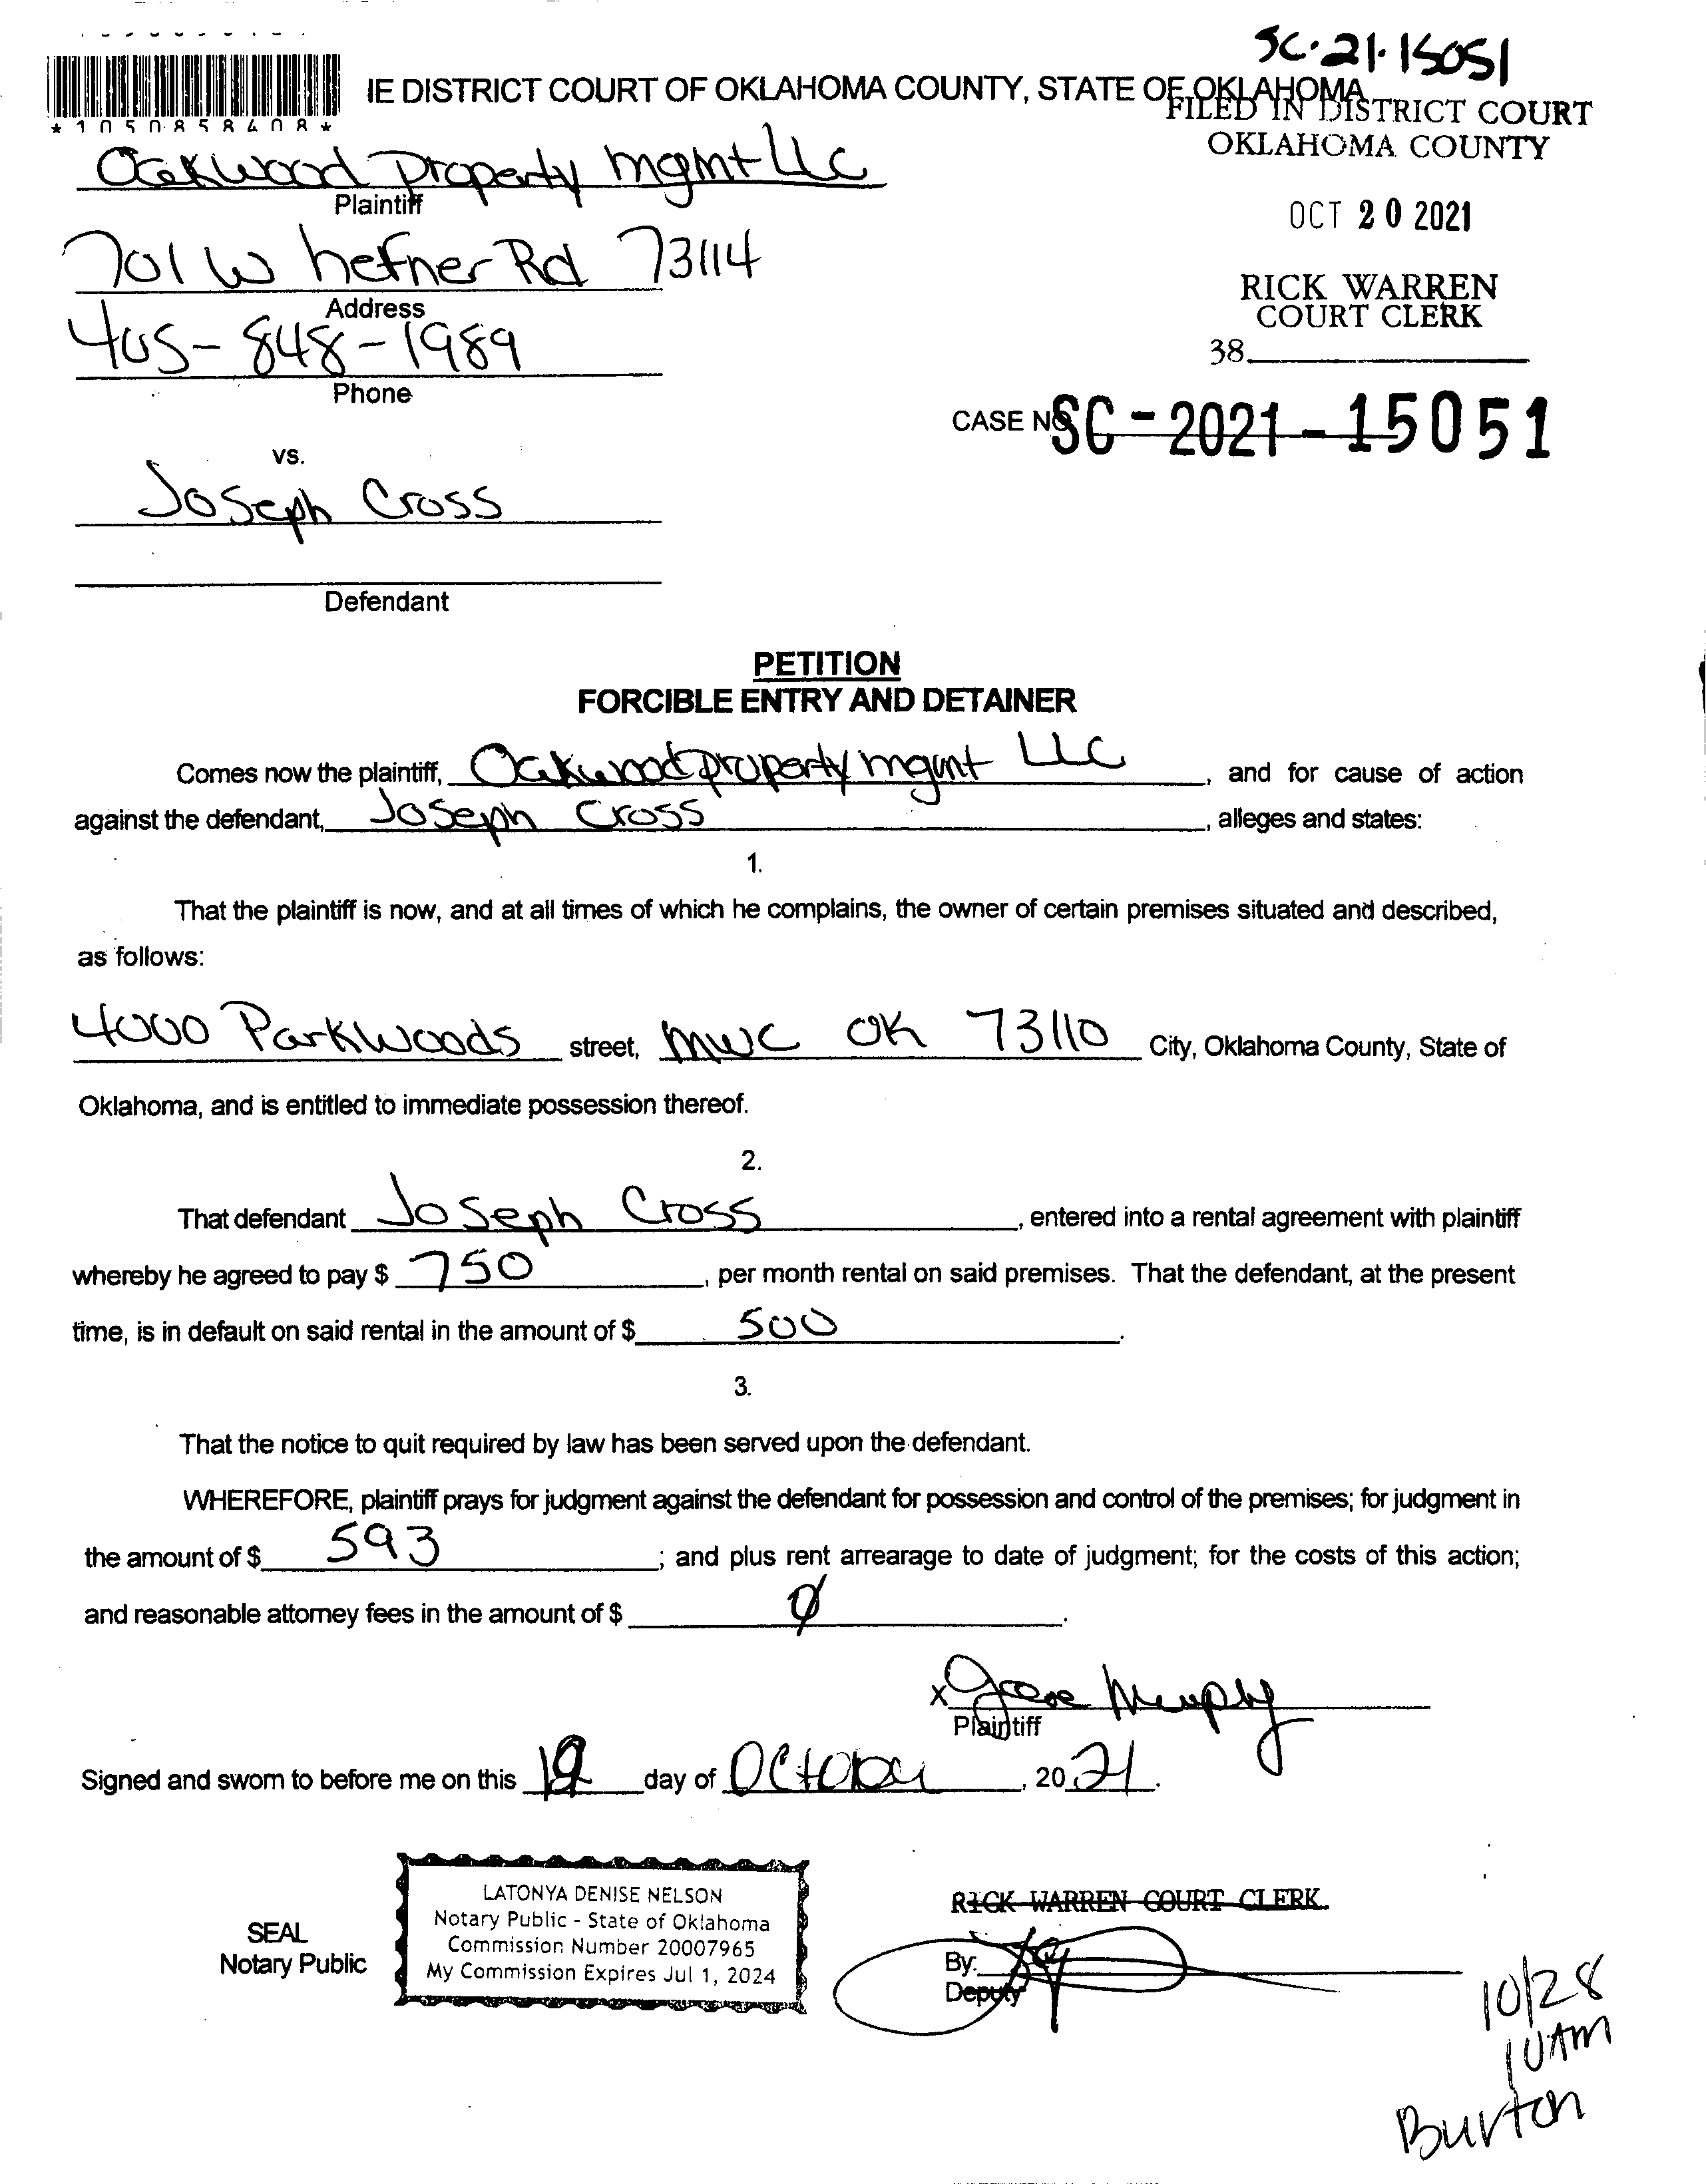 SC-21-15051
IE DISTRICT COURT OF OKLAHOMA COUNTY, STATE OF OKLAHOMA
*1050858408*
FILED IN DISTRICT COURT
OKLAHOMA COUNTY
Oakwood Property mgmt LLC
Plaintiff
OCT 20 2021
701 W hefner Rd 73114
Address
RICK WARREN
COURT CLERK
405-848-1989
38
Phone
CASE NO SC-2021-15051
vs.
Joseph Cross
Defendant
PETITION
FORCIBLE ENTRY AND DETAINER
Comes now the plaintiff, Oakwood property mgmt LLC, and for cause of action
against the defendant, Joseph Cross, alleges and states:
1.
That the plaintiff is now, and at all times of which he complains, the owner of certain premises situated and described,
as follows:
4000 Parkwoods street, MWC OK 73110 City, Oklahoma County, State of
Oklahoma, and is entitled to immediate possession thereof.
2.
That defendant Joseph Cross, entered into a rental agreement with plaintiff
whereby he agreed to pay $ 750, per month rental on said premises. That the defendant, at the present
time, is in default on said rental in the amount of $ 500.
3.
That the notice to quit required by law has been served upon the defendant.
WHEREFORE, plaintiff prays for judgment against the defendant for possession and control of the premises; for judgment in
the amount of $ 593; and plus rent arrearage to date of judgment; for the costs of this action;
and reasonable attorney fees in the amount of $ 0.
x Murphy
Plaintiff
Signed and sworn to before me on this 19 day of October, 2021.
LATONYA DENISE NELSON
Notary Public - State of Oklahoma
Commission Number 20007965
My Commission Expires Jul 1, 2024
SEAL
Notary Public
RICK WARREN COURT CLERK
By:
Deputy
10/28
10AM
Burton